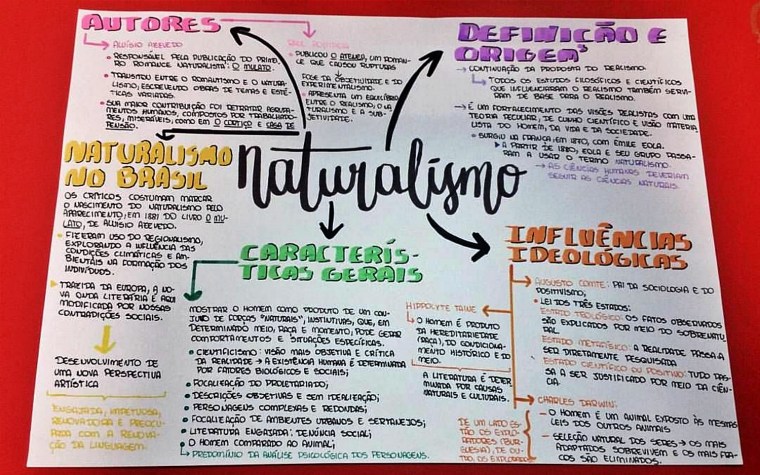 AUTORES
ALUÍSIO AZEVEDO
• RESPONSÁVEL PELA PUBLICAÇÃO DO PRIMEI-
RO ROMANCE NATURALISTA: O MULATO.
• TRANSITOU ENTRE O ROMANTISMO E O NATURA-
LISMO, ESCREVENDO OBRAS DE TEMAS E ESTÉ-
TICAS VARIADAS.
• SUA MAIOR CONTRIBUIÇÃO FOI RETRATAR AGRUPA-
MENTOS HUMANOS, COMPOSTOS POR TRABALHADO-
RES, MISERÁVEIS, COMO EM O CORTIÇO E CASA DE
PENSÃO.
RAUL POMPEIA
• PUBLICOU O ATENEU, UM ROMAN-
CE QUE CAUSOU RUPTURAS
FOGE DA OBJETIVIDADE E DO
EXPERIMENTALISMO.
• APRESENTA UM EQUILÍBRIO
ENTRE O REALISMO, O NA-
TURALISMO E A SUB-
JETIVIDADE.
DEFINIÇÃO E
ORIGEM
CONTINUAÇÃO DA PROPOSTA DO REALISMO.
TODOS OS ESTUDOS FILOSÓFICOS E CIENTÍFICOS
QUE INFLUENCIARAM O REALISMO TAMBÉM SERVI-
RAM DE BASE PARA O REALISMO.
É UM FORTALECIMENTO DAS VISÕES REALISTAS COM UMA
TEORIA PECULIAR, DE CUNHO CIENTÍFICO E VISÃO MATERIA
LISTA DO HOMEM, DA VIDA E DA SOCIEDADE.
• SURGIU NA FRANÇA, EM 1870, COM ÉMILE ZOLA.
A PARTIR DE 1880, ZOLA E SEU GRUPO PASSA-
RAM A USAR O TERMO NATURALISMO.
AS CIÊNCIAS HUMANAS DEVERIAM
SEGUIR AS CIÊNCIAS NATURAIS.
naturalismo
NATURALISMO
NO BRASIL
OS CRÍTICOS COSTUMAM MARCAR
O NASCIMENTO DO NATURALISMO PELO
APARECIMENTO, EM 1881 DO LIVRO O MU-
LATO, DE ALUÍSIO AZEVEDO.
FIZERAM USO DO REGIONALISMO,
EXPLORANDO A INFLUÊNCIA DAS
CONDIÇÕES CLIMÁTICAS E AM-
BIENTAIS NA FORMAÇÃO DOS
INDIVÍDUOS.
TRAZIDA DA EUROPA, A NO-
VA ONDA LITERÁRIA É AQUI
MODIFICADA POR NOSSAS
CONTRADIÇÕES SOCIAIS.
DESENVOLVIMENTO DE
UMA NOVA PERSPECTIVA
ARTÍSTICA
ENGAJADA, IMPETUOSA,
RENOVADORA E PREOCU-
PADA COM A RENOVA-
ÇÃO DA LINGUAGEM.
CARACTERÍS-
TICAS GERAIS
MOSTRAR O HOMEM COMO PRODUTO DE UM CON-
JUNTO DE FORÇAS "NATURAIS", INSTINTIVAS, QUE, EM
DETERMINADO MEIO, RAÇA E MOMENTO, PODE GERAR
COMPORTAMENTOS E SITUAÇÕES ESPECÍFICAS.
• CIENTIFICISMO: VISÃO MAIS OBJETIVA E CRÍTICA
DA REALIDADE → A EXISTÊNCIA HUMANA É DETERMINADA
POR FATORES BIOLÓGICOS E SOCIAIS;
• FOCALIZAÇÃO DO PROLETARIADO;
• DESCRIÇÕES OBJETIVAS E SEM IDEALIZAÇÃO;
• PERSONAGENS COMPLEXAS E REDONDAS;
• FOCALIZAÇÃO DE AMBIENTES URBANOS E SERTANEJOS;
• LITERATURA ENGAJADA: DENÚNCIA SOCIAL;
• O HOMEM COMPARADO AO ANIMAL;
PREDOMÍNIO DA ANÁLISE PSICOLÓGICA DOS PERSONAGENS.
INFLUÊNCIAS
IDEOLÓGICAS
HIPPOLYTE TAINE:
O HOMEM É PRODUTO
DA HEREDITARIEDADE
(RAÇA), DO CONDICIONA-
MENTO HISTÓRICO E DO
MEIO.
A LITERATURA É DETER
MINADA POR CAUSAS
NATURAIS E CULTURAIS.
AUGUSTO COMTE: PAI DA SOCIOLOGIA E DO
POSITIVISMO.
• LEI DOS TRÊS ESTADOS:
ESTADO TEOLÓGICO: OS FATOS OBSERVADOS
SÃO EXPLICADOS POR MEIO DO SOBRENATU
RAL.
ESTADO METAFÍSICO: A REALIDADE PASSA A
SER DIRETAMENTE PESQUISADA
ESTADO CIENTÍFICO OU POSITIVO: TUDO PAS-
SA A SER JUSTIFICADO POR MEIO DA CIÊN-
CIA.
CHARLES DARWIN:
O HOMEM É UM ANIMAL EXPOSTO ÀS MESMAS
LEIS DOS OUTROS ANIMAIS
SELEÇÃO NATURAL DOS SERES → OS MAIS
ADAPTADOS SOBREVIVEM E OS MAIS FRA-
COS SÃO ELIMINADOS.
DE UM LADO ES-
TÃO OS EXPLO-
RADORES (BUR-
GUESIA), DE OU-
TRO, OS EXPLORADOS